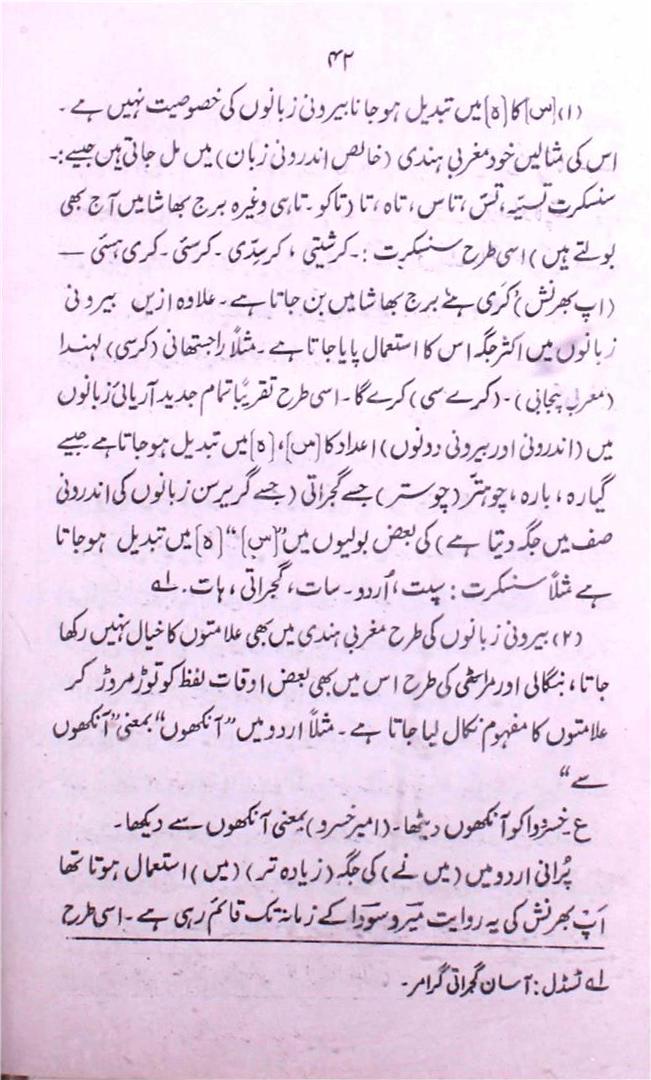 ۴۲
(۱) [س] کا [ہ] میں تبدیل ہو جانا بیرونی زبانوں کی خصوصیت نہیں ہے ۔
اس کی مثالیں خود مغربی ہندی (خالص اندرونی زبان) میں مل جاتی ہیں جیسے :۔
سنسکرت تسیہ، تسّ، تاس، تاہ، تا (تاکو ۔ تاہی وغیرہ برج بھاشا میں آج بھی
بولتے ہیں) اسی طرح سنسکرت :۔ کرشیتی ، کرسِدّی ۔ کرسئی ۔ کری ہئی —
(اپ بھرنش) کَری ہَے برج بھاشا میں بن جاتا ہے ۔ علاوہ ازیں بیرونی
زبانوں میں اکثر جگہ اس کا استعمال پایا جاتا ہے ۔ مثلاً راجستھانی (کرسی) لہندا
(مغربی پنجابی) ۔ (کرے سی) کرے گا ۔ اسی طرح تقریباً تمام جدید آریائی زبانوں
میں (اندرونی اور بیرونی دونوں) اعداد کا [س]، [ہ] میں تبدیل ہو جاتا ہے جیسے
گیارہ ، بارہ ، چوہتّر (چوستر) جسے گجراتی (جسے گریرسن زبانوں کی اندرونی
صف میں جگہ دیتا ہے) کی بعض بولیوں میں "[س]" "[ہ] میں تبدیل ہو جاتا
ہے مثلاً سنسکرت : سپت ، اُردو ۔ سات ، گجراتی ، ہات ۔ لے
(۲) بیرونی زبانوں کی طرح مغربی ہندی میں بھی علامتوں کا خیال نہیں رکھا
جاتا ، بنگالی اور مراٹھی کی طرح اس میں بھی بعض اوقات لفظ کو توڑ مروڑ کر
علامتوں کا مفہوم نکال لیا جاتا ہے ۔ مثلاً اردو میں "آنکھوں" بمعنی "آنکھوں
سے"
ع خسرو کو آنکھوں دیٹھا ۔ (امیر خسرو) بمعنی آنکھوں سے دیکھا ۔
پُرانی اردو میں (میں نے) کی جگہ (زیادہ تر) (میں) استعمال ہوتا تھا
اَپ بھرنش کی یہ روایت میرؔ و سوداؔ کے زمانہ تک قائم رہی ہے ۔ اسی طرح
لے ٹسڈل : آسان گجراتی گرامر ۔